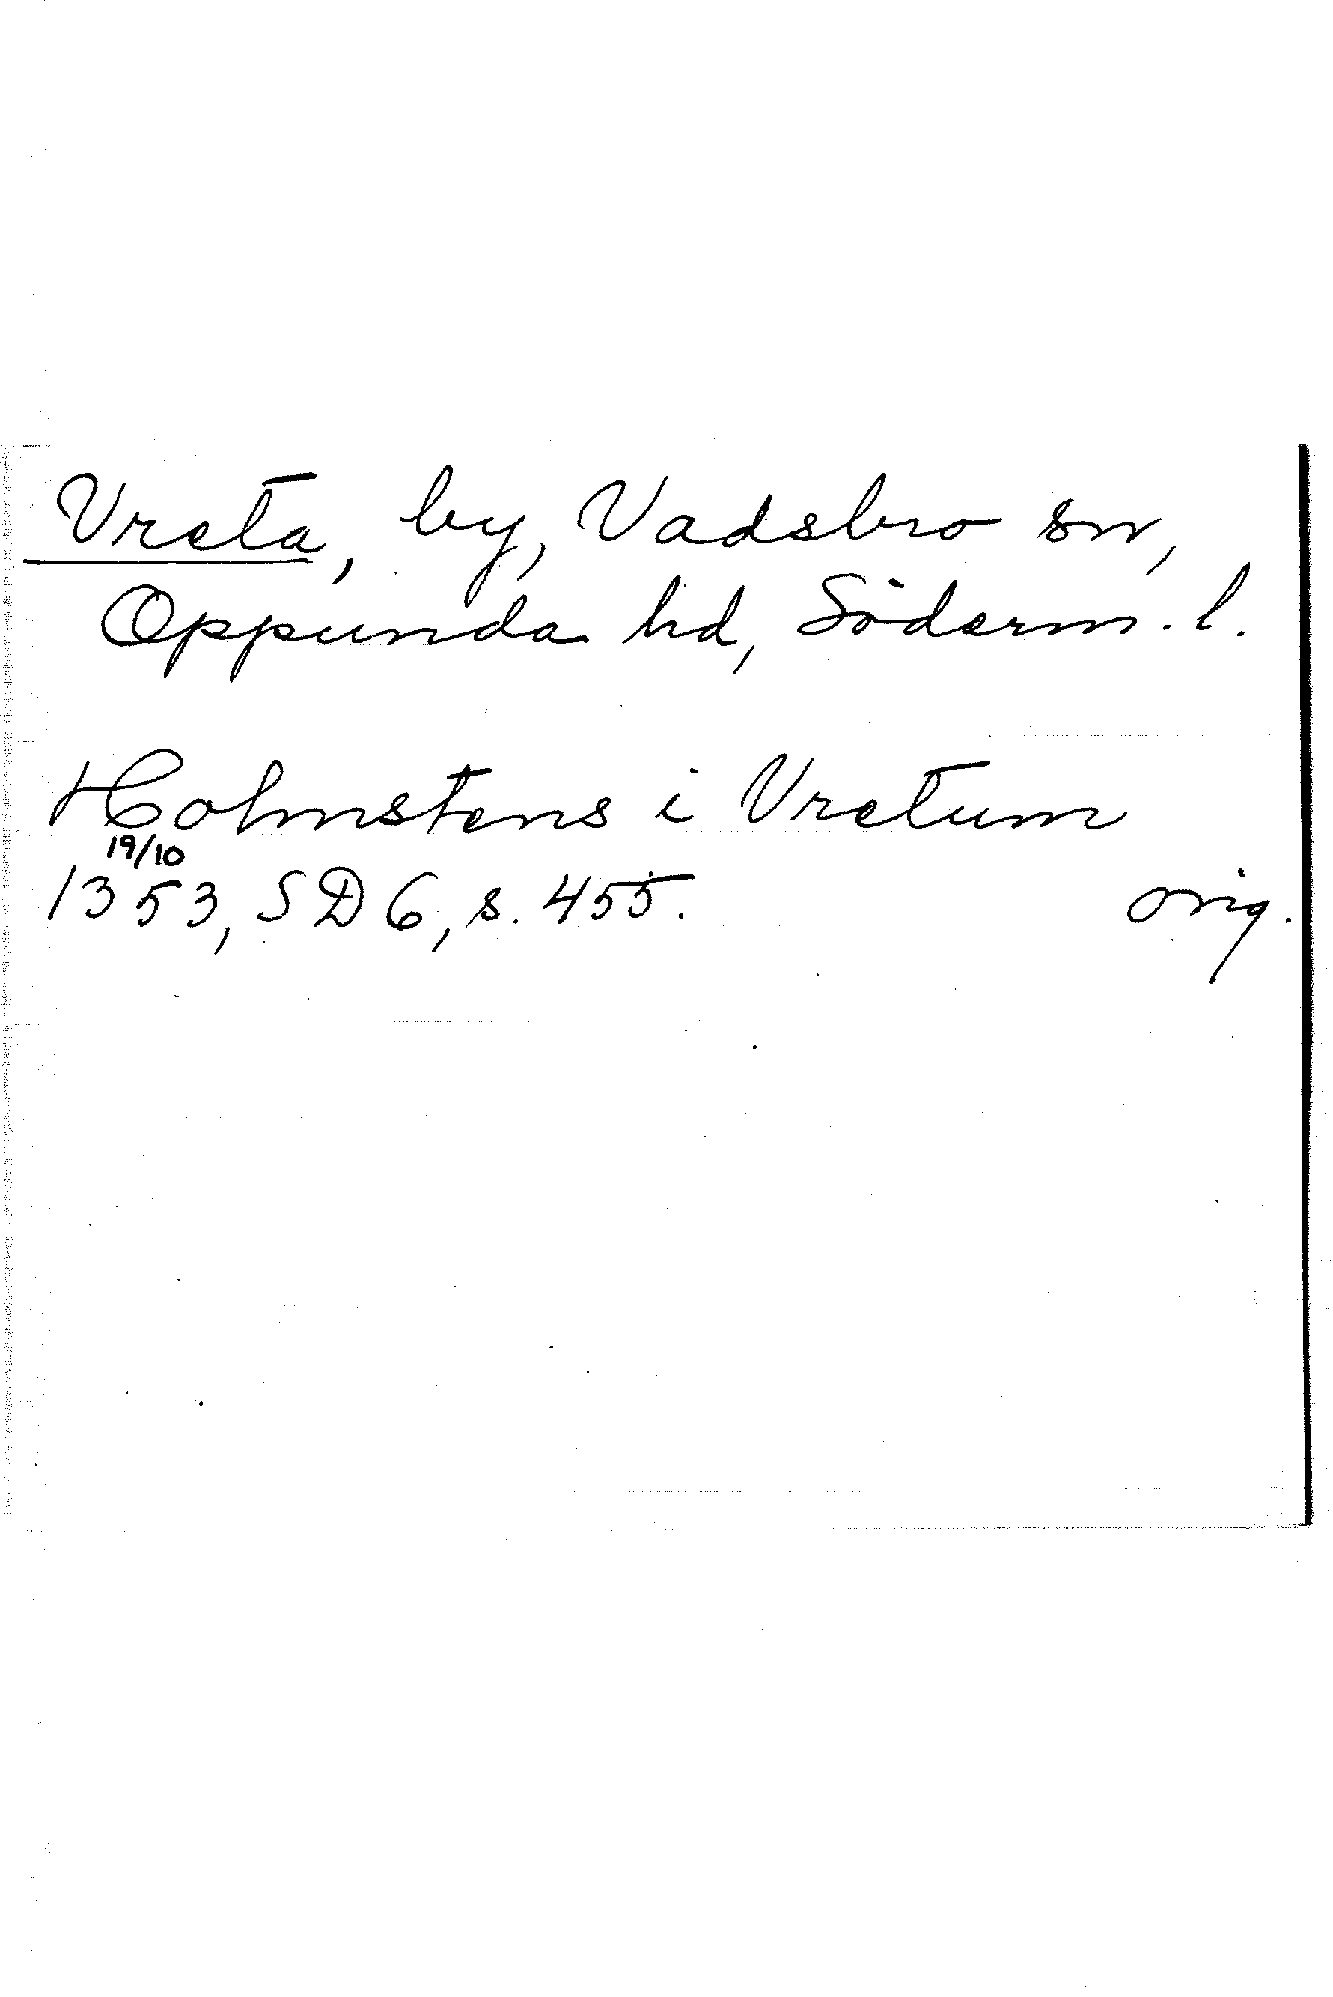 Vreta, by, Vadsbro sn,
Oppunda hd, Söderm. l.
Holmstens i Vretum
19/10
1353, SD 6, s. 455. orig.